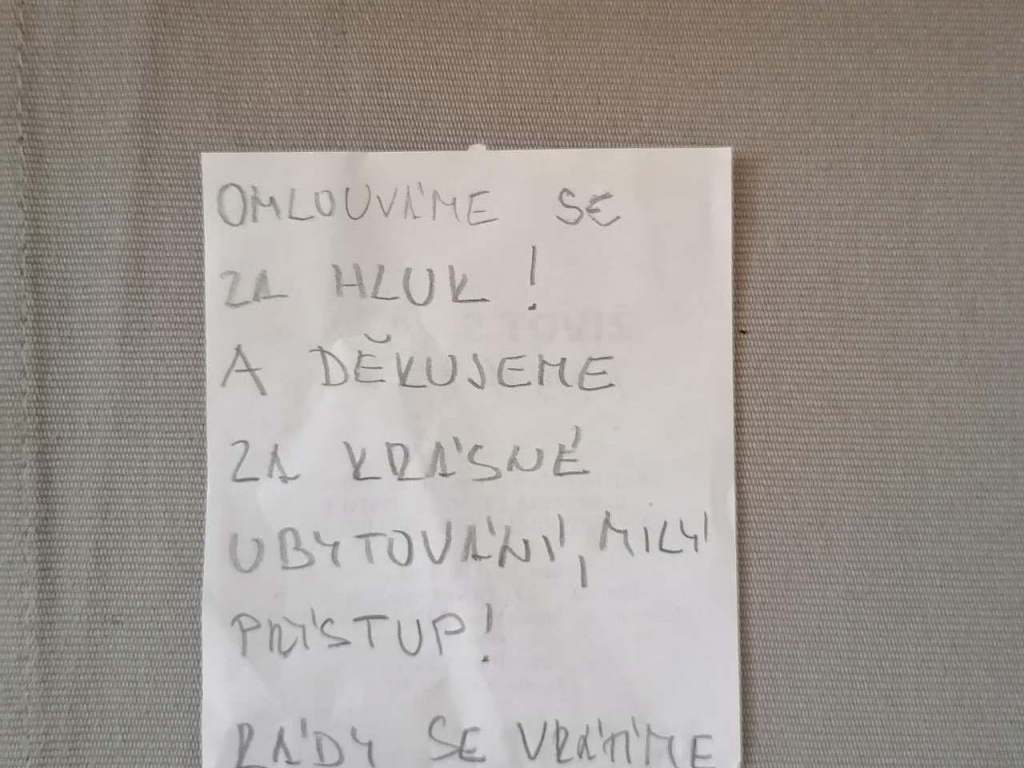 OMLOUVÁME SE
ZA HLUK!
A DĚKUJEME
ZA KRÁSNÉ
UBYTOVÁNÍ, MILÝ
PŘÍSTUP!
RÁDY SE VRÁTÍME